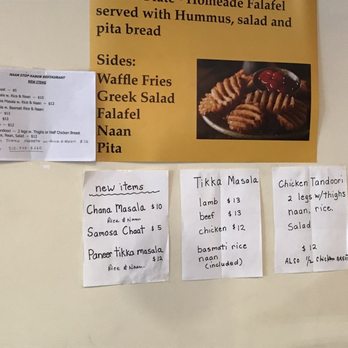 Homeade Falafel
served with Hummus, salad and
pita bread
Sides:
Waffle Fries
Greek Salad
Falafel
Naan
Pita
NAAN STOP KABOB RESTAURANT
NEW ITEMS
new items
Chana Masala $10
Rice & Naan
Samosa Chaat $5
Paneer tikka masala
$12
Rice & Naan
Tikka Masala
lamb $13
beef $13
chicken $12
basmati rice
naan
(included)
Chicken Tandoori
2 legs w/thighs
naan, rice,
Salad
$12
ALSO 1/2 Chicken